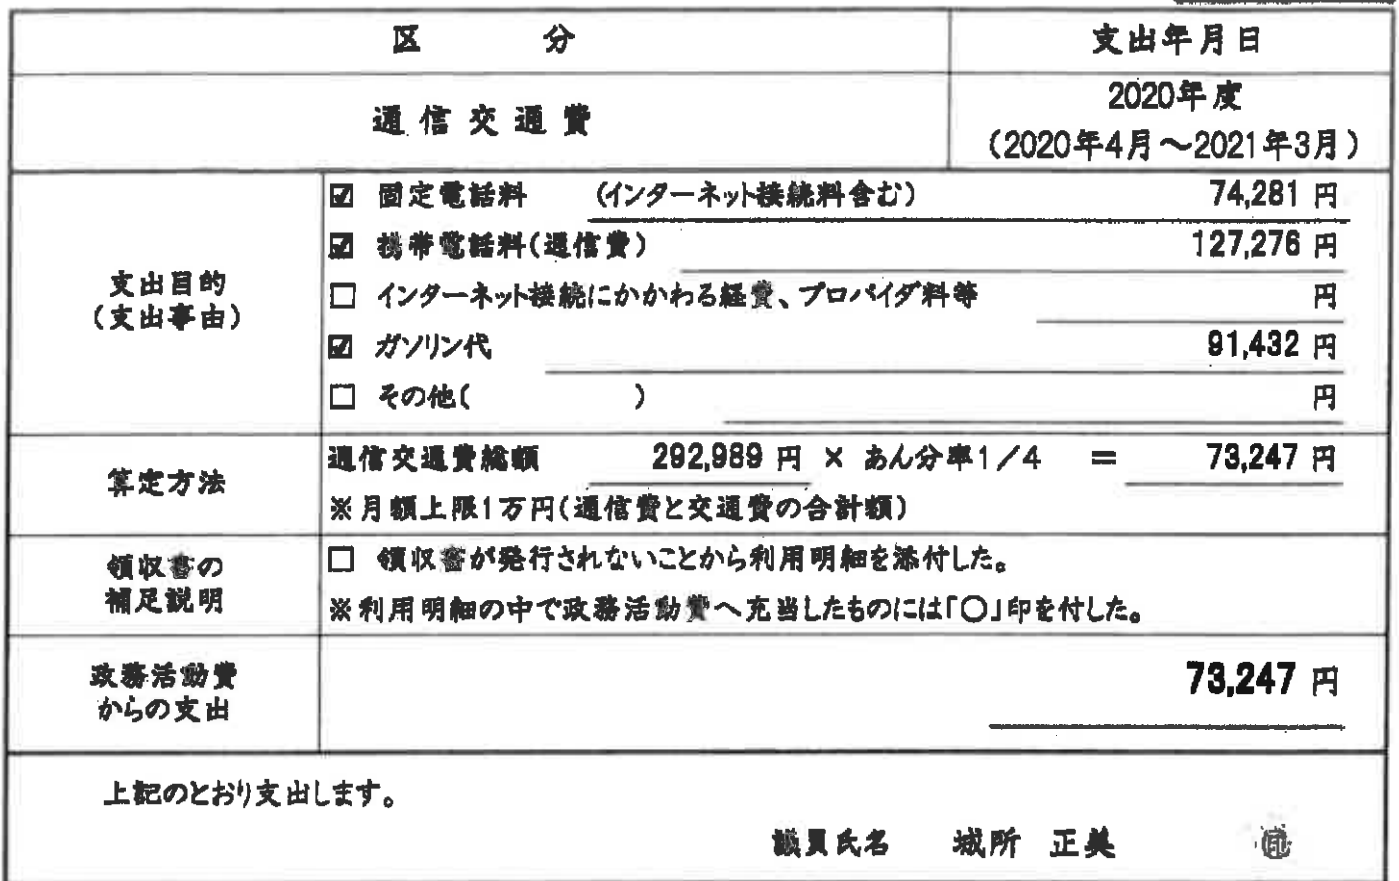 区　分　支出年月日
通信交通費　2020年度
（2020年4月～2021年3月）
支出目的
（支出事由）
☑ 固定電話料　（インターネット接続料含む）　74,281 円
☑ 携帯電話料（通信費）　127,276 円
☐ インターネット接続にかかわる経費、プロバイダ料等　円
☑ ガソリン代　91,432 円
☐ その他（　　　）　円
算定方法
通信交通費総額　292,989 円 × あん分率1／4 ＝ 73,247 円
※月額上限1万円（通信費と交通費の合計額）
領収書の
補足説明
☐ 領収書が発行されないことから利用明細を添付した。
※利用明細の中で政務活動費へ充当したものには「〇」印を付した。
政務活動費
からの支出
73,247 円
上記のとおり支出します。
議員氏名　城所 正美